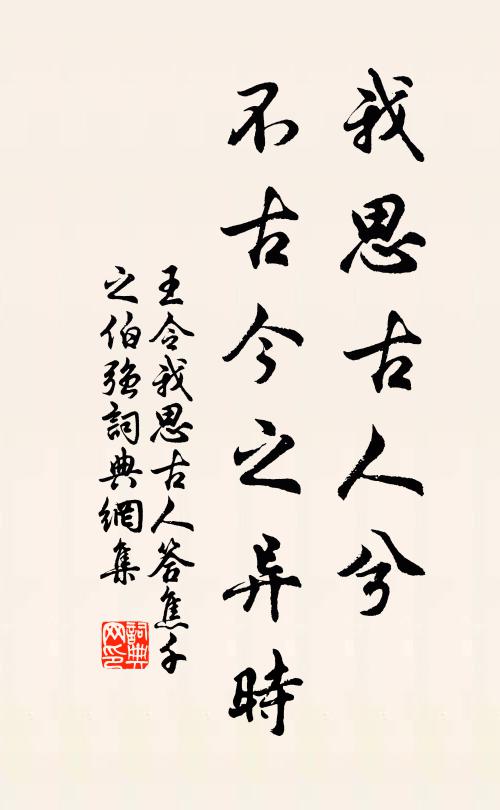 我思古人兮
不古今之异時
王令我思古人答焦千
之伯强詞典網集
詞典
网印